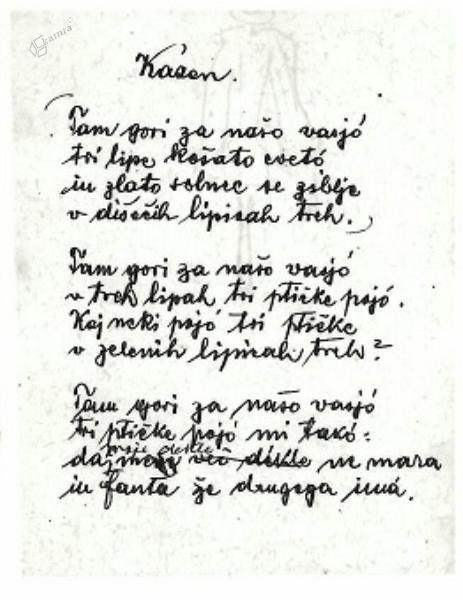 kamra
Kásen.
Tam gori za našo vasjó
tri lipe košato cvetó
in zlato solnce se ziblje
v dišečih lipicah treh.)
Tam gori za našo vasjó
v treh lipah tri ptičke pojó.
Kaj neki pojó tri ptičke
v zelenih lipicah treh?
Tam gori za našo vasjó
tri ptičke pojó mi takó:
moje dekle
da več dekle ne mara
in fanta že drugega imá.